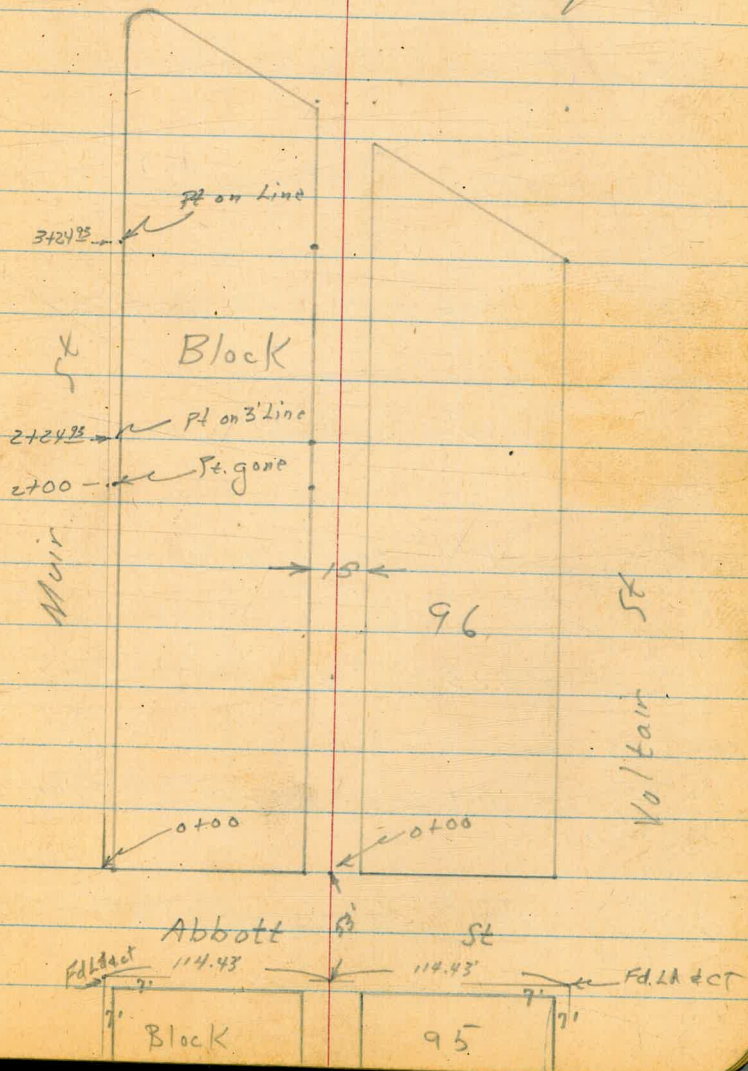 Pt on Line
3+24.95
Block
St
Pt on 3' Line
2+24.95
Pt. gone
2+00
Muir
15
96
St
Voltair
0+00
0+00
Abbott St
Fd. Ld & CT 114.43' 114.43' Fd. Ld & CT
7' 7'
7' 7'
Block 95